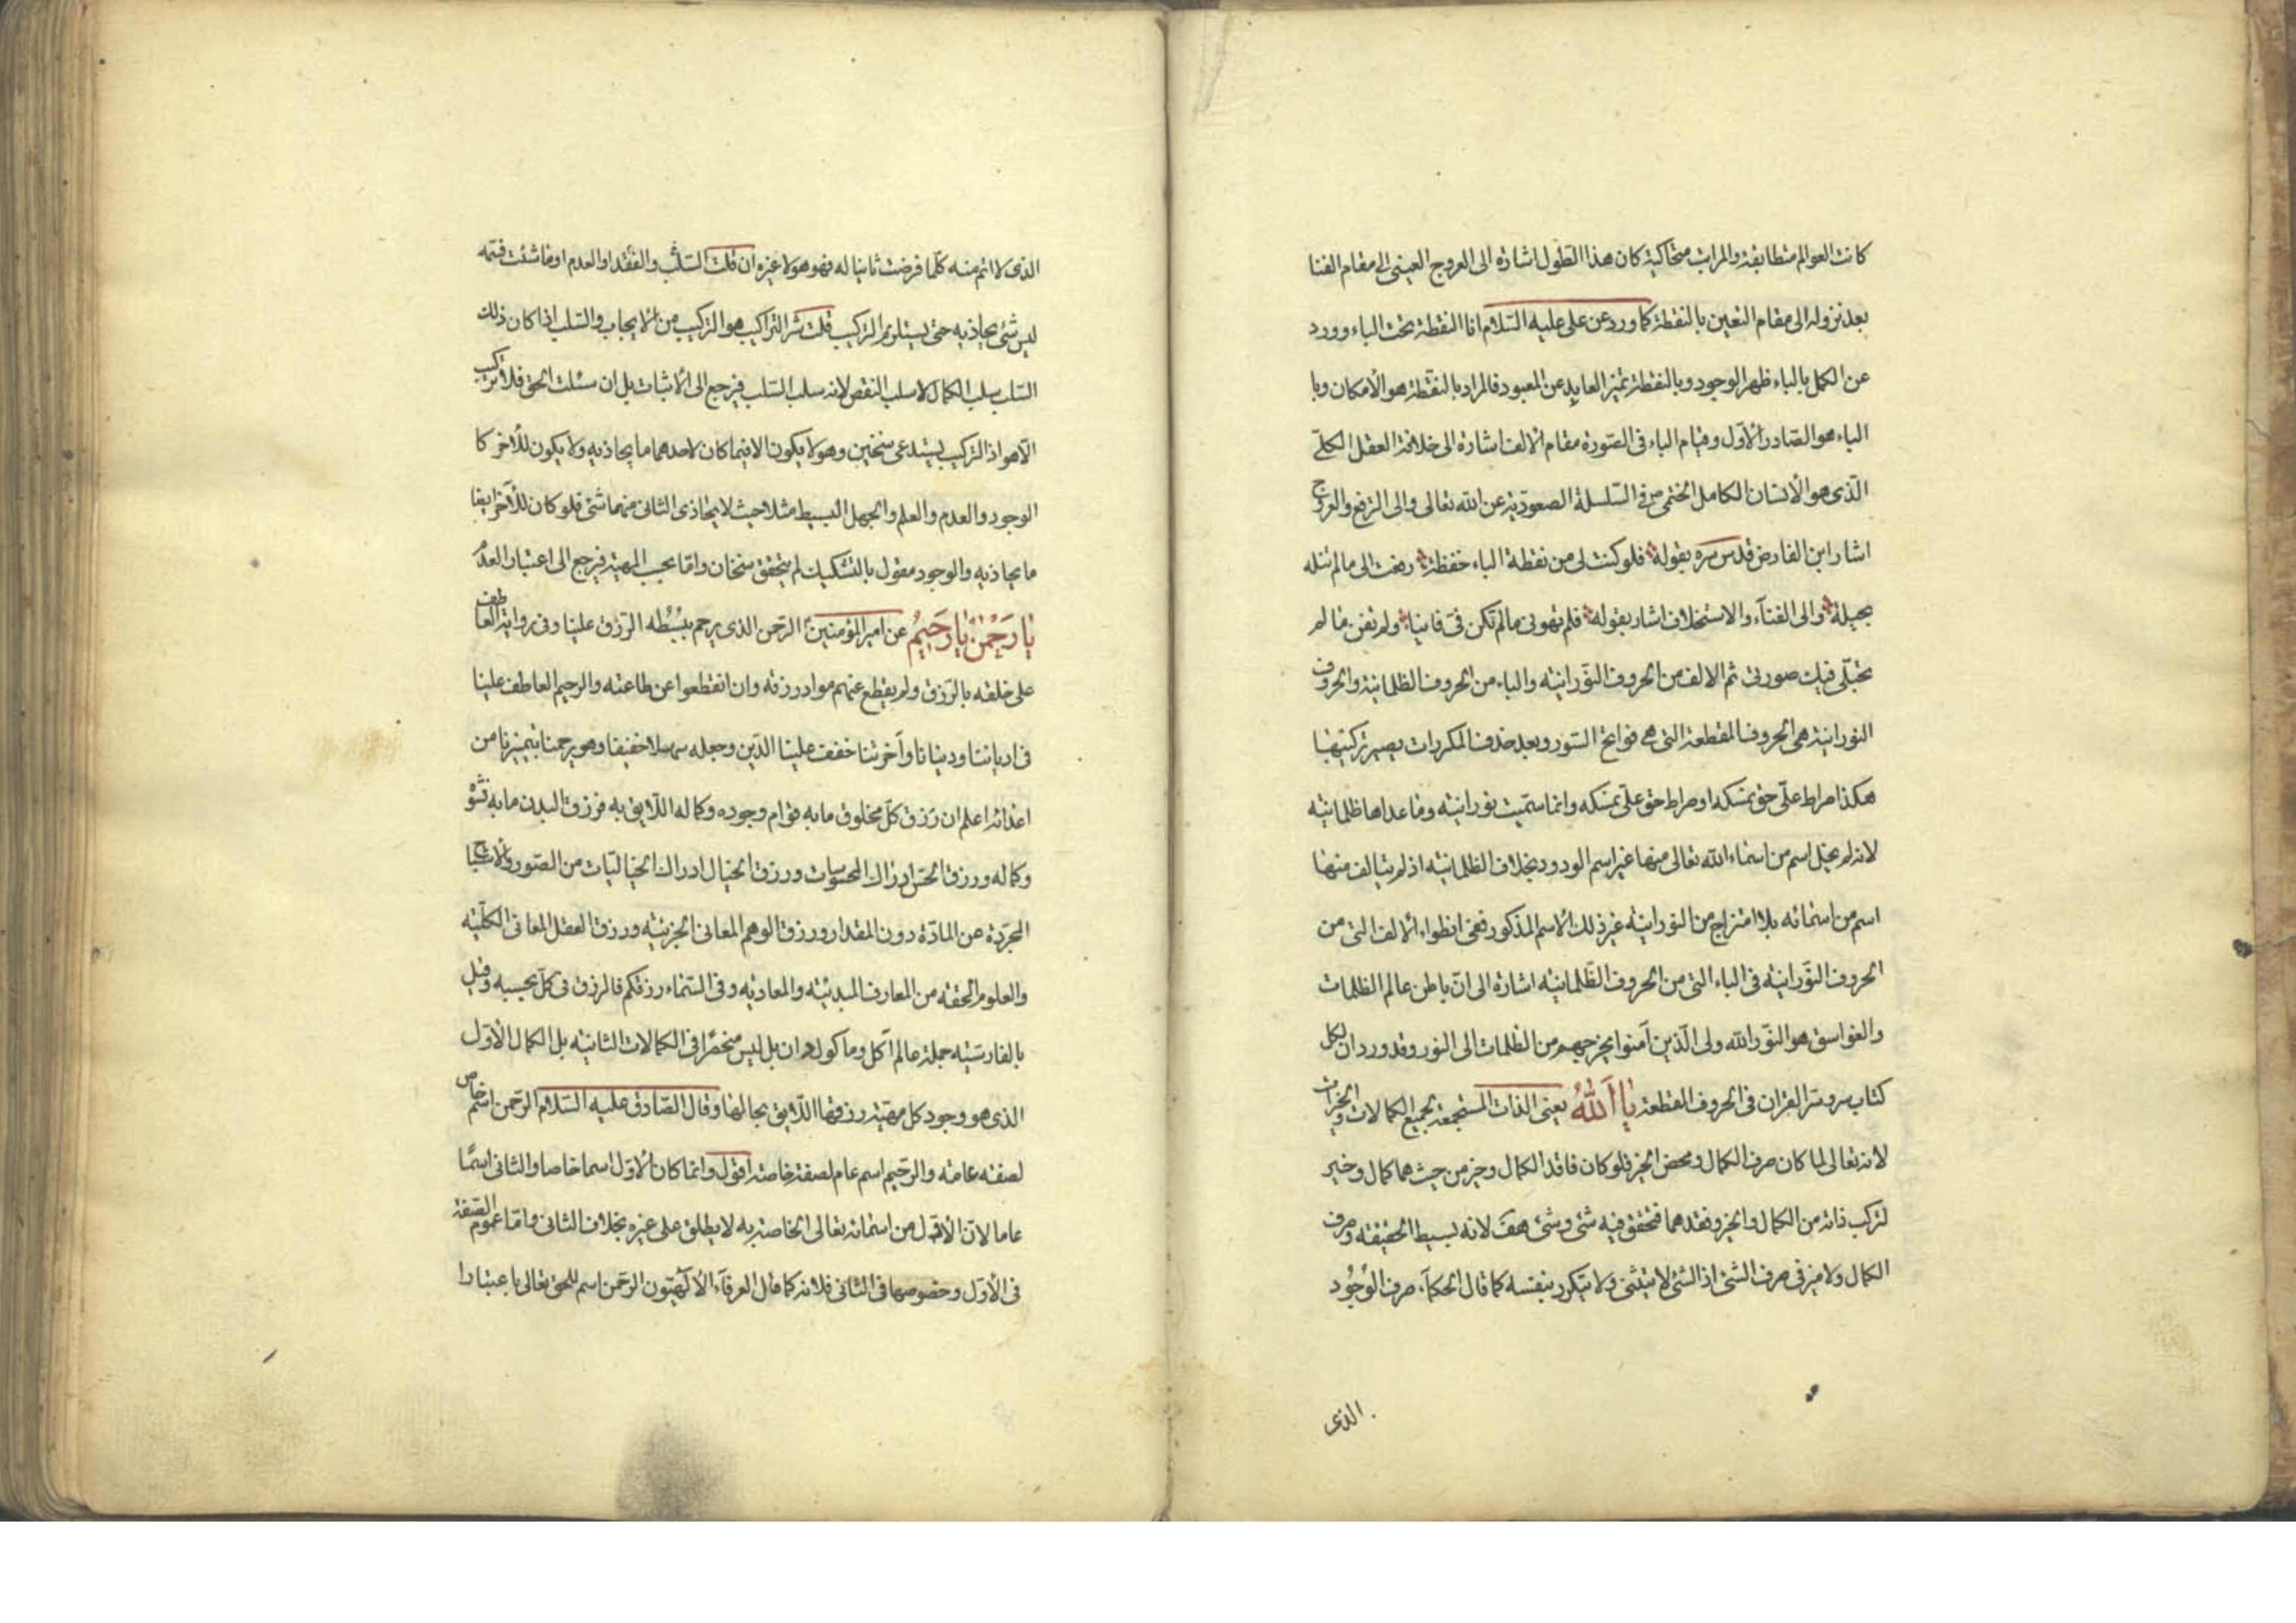 كانت العوالم متطابقة والمراتب متحاكية كان هذا التطول اشارة الى العروج العينى الى مقام الفنا
بعد نزوله الى مقام التعين بالنقطة كما ورد عن على عليه السّلام انا النقطة تحت الباء وورد
عن الكمل بالباء ظهر الوجود وبالنقطة تميز العابد عن المعبود فالمراد بالنقطة هو الأمكان وبا
الباء هو الصّادر الأوّل وقيام الباء فى الصّورة مقام الالف اشارة الى خلافة العقل الكلّى
الّذى هو الأنسان الكامل الختمى فى السّلسلة الصعوديّة عن الله تعالى والى الترفع والعروج
اشار ابن الفارض قدس سره بقوله فلو كنت لى من نقطة الباء خفظة رفعت الى مالم تنله
بحيلة والى الفنآء والاستخلاف اشار بقوله فلم تهونى مالم تكن فىّ فانيا ولم تفن ما لم
تجتلى فيك صورتى ثم الالف من الحروف النّورانيّه والباء من الحروف الظلمانية والحروف
النورانيّة هى الحروف المقطعة التى هى فواتح السّور وبعد حذف المكررات يصير تركيبها
هكذا صراط علىّ حق نمسكه او صراط حق علىّ نمسكه وانما سمّيت نورانيّه وما عداها ظلمانيّه
لانه لم يخل اسم من اسماء الله تعالى منها غير اسم الودود بخلاف الظلمانيّه اذ لم يتالف منها
اسم من اسمائه بلا امتزاج من النورانيّه غير ذلك الأسم المذكور ففى انطواء الألف التى من
الحروف النّورانيّه فى الباء التى من الحروف الظّلمانيّه اشارة الى انّ باطن عالم الظلمات
والغواسق هو النّور الله ولى الّذين آمنوا يخرجهم من الظلمات الى النور وقد ورد ان لكل
كتاب سر وسرّ القران فى الحروف المقطعة يا اَللهُ يعنى الذات المستجمعة لجميع الكمالات والخيرات
لانه تعالى لما كان صرف الكمال ومحض الخير فلو كان فاقد الكمال وخير من حيث هما كمال وخير
لتركب ذاته من الكمال والخير وفقدهما فتحقق فيه شئ وشئ هف لانه بسيط الحقيقة وصرف
الكمال ولا ميز فى صرف الشئ اذ الشئ لا يتثنى ولا يتكرر بنفسه كما قال الحكمآء صرف الوُجُود
الذى
الذى لا اتم منه كلّما فرضت ثانيا له فهو هو لا غيره ان قلت السّلب والفقد او العدم او ما شئت فسمّه
ليس شئ يحاذيه حتى يستلزم التركيب قلت شر التراكيب هو التركيب من الايجاب والسّلب اذا كان ذلك
السّلب سلب الكمال لا سلب النقص لانه سلب السّلب فيرجع الى الأثبات بل ان سئلت الحق فلا تركيب
الّا هو اذ التركيب يستدعى سنخين وهو لا يكون الا فيما كان لاحدهما ما يحاذيه ولا يكون للأخر كا
الوجود والعدم والعلم والجهل البسيط مثلا حيث لا يحاذى الثانى منهما شئ فلو كان للأخر ايضا
ما يحاذيه والوجود مقول بالتشكيك لم يتحقق سنخان وامّا بحسب المهية فيرجع الى اعتبار العدم
يا رَحْمٰنُ يا رَحيمُ عن امير المؤمنين الرّحمن الذى يرحم ببسُطه الرّزق علينا وفى رواية العاطف
على خلقه بالرّزق ولم يقطع عنهم مواد رزقه وان انقطعوا عن طاعته والرحيم العاطف علينا
فى ادياننا ودنيانا وآخرتنا خفف علينا الدّين وجعله سهلا خفيفا وهو يرحمنا بتميزنا من
اعدائه اعلم ان رزق كلّ مخلوق ما به قوام وجوده وكماله اللّايق به فرزق البدن ما به نشوه
وكماله ورزق الحسّ ادراك المحسوسات ورزق الخيال ادراك الخياليّات من الصّور والاشباح
المجرّدة عن المادّة دون المقدار ورزق الوهم المعانى الجزئيّه ورزق العقل المعانى الكلّيّه
والعلوم الحقة من المعارف المبدئيّه والمعاديّه وفى السّماء رزقكم فالرزق فى كلّ بحسبه وقيل
بالفارسيّه جمله عالم آكل وماكول دان بل ليس منحصرا فى الكمالات الثانيّه بل الكمال الأوّل
الذى هو وجود كل مهيّة رزقها اللّايق بحالها وقال الصّادق عليه السّلام الرّحمن اسم خاص
لصفته عامّه والرّحيم اسم عام لصفة خاصّة اقول وانما كان الأوّل اسما خاصا والثانى اسمًا
عاما لانّ الأوّل من اسمائه تعالى الخاصّة به لا يطلق على غيره بخلاف الثانى وامّا عموم الصّفة
فى الأوّل وخصوصها فى الثانى فلانه كما قال العرفآء الألهّيون الرّحمن اسم للحق تعالى باعتبار ا